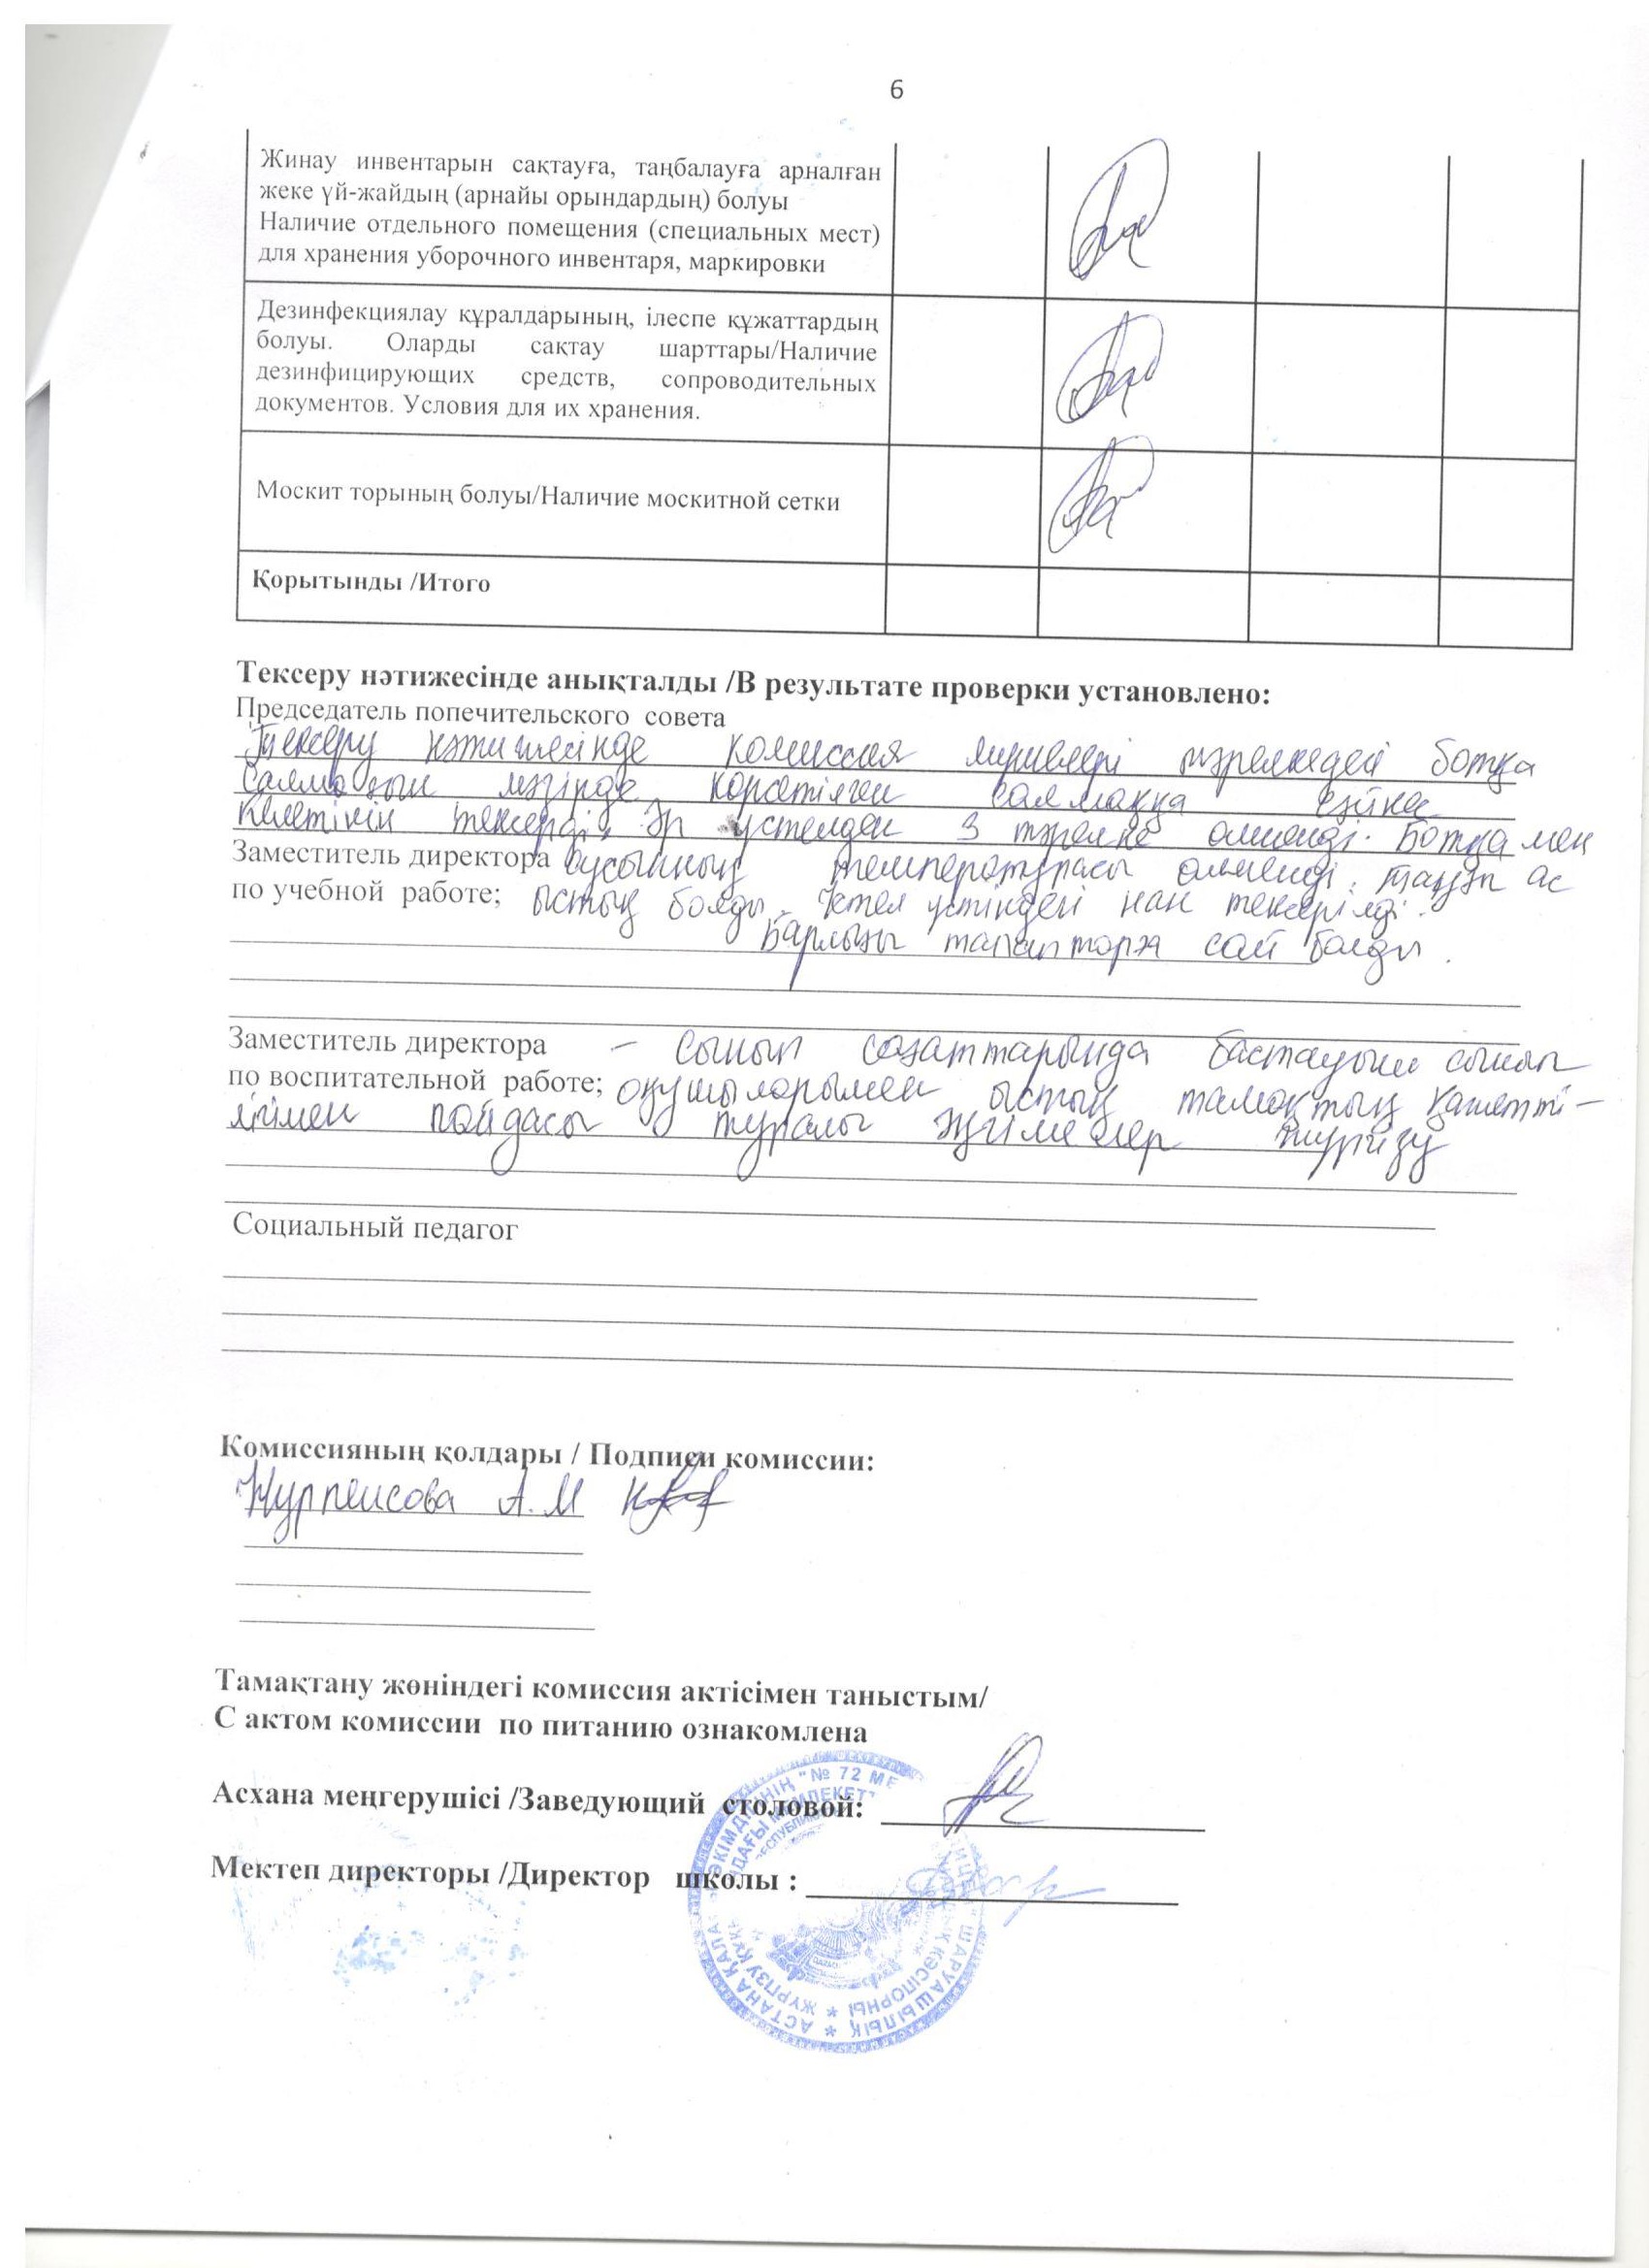 6
Жинау инвентарын сақтауға, таңбалауға арналған
жеке үй-жайдың (арнайы орындардың) болуы
Наличие отдельного помещения (специальных мест)
для хранения уборочного инвентаря, маркировки
Дезинфекциялау құралдарының, ілеспе құжаттардың
болуы. Оларды сақтау шарттары/Наличие
дезинфицирующих средств, сопроводительных
документов. Условия для их хранения.
Москит торының болуы/Наличие москитной сетки
Қорытынды /Итого
Тексеру нәтижесінде анықталды /В результате проверки установлено:
Председатель попечительского совета
Тексеру нәтижесінде комиссия мүшелері тәрелкедегі ботқа
салмағын мәзірде көрсетілген салмаққа сәйкес
келетінін тексерді. Әр үстелден 3 тәрелке өлшенді. Ботқа мен
Заместитель директора сусынның температурасы өлшенді, таңғы ас
по учебной работе; ыстық болды. Үстел үстіндегі нан тексерілді.
Барлығы талаптарға сай болды.
Заместитель директора - Сынып сағаттарында бастауыш сынып
по воспитательной работе; оқушыларымен ыстық тамақтың қажетті-
лігімен пайдасы туралы әңгімелер жүргізу
Социальный педагог
Комиссияның қолдары / Подписи комиссии:
Нурпеисова А.М
Тамақтану жөніндегі комиссия актісімен таныстым/
С актом комиссии по питанию ознакомлена
Асхана меңгерушісі /Заведующий столовой:
Мектеп директоры /Директор школы :